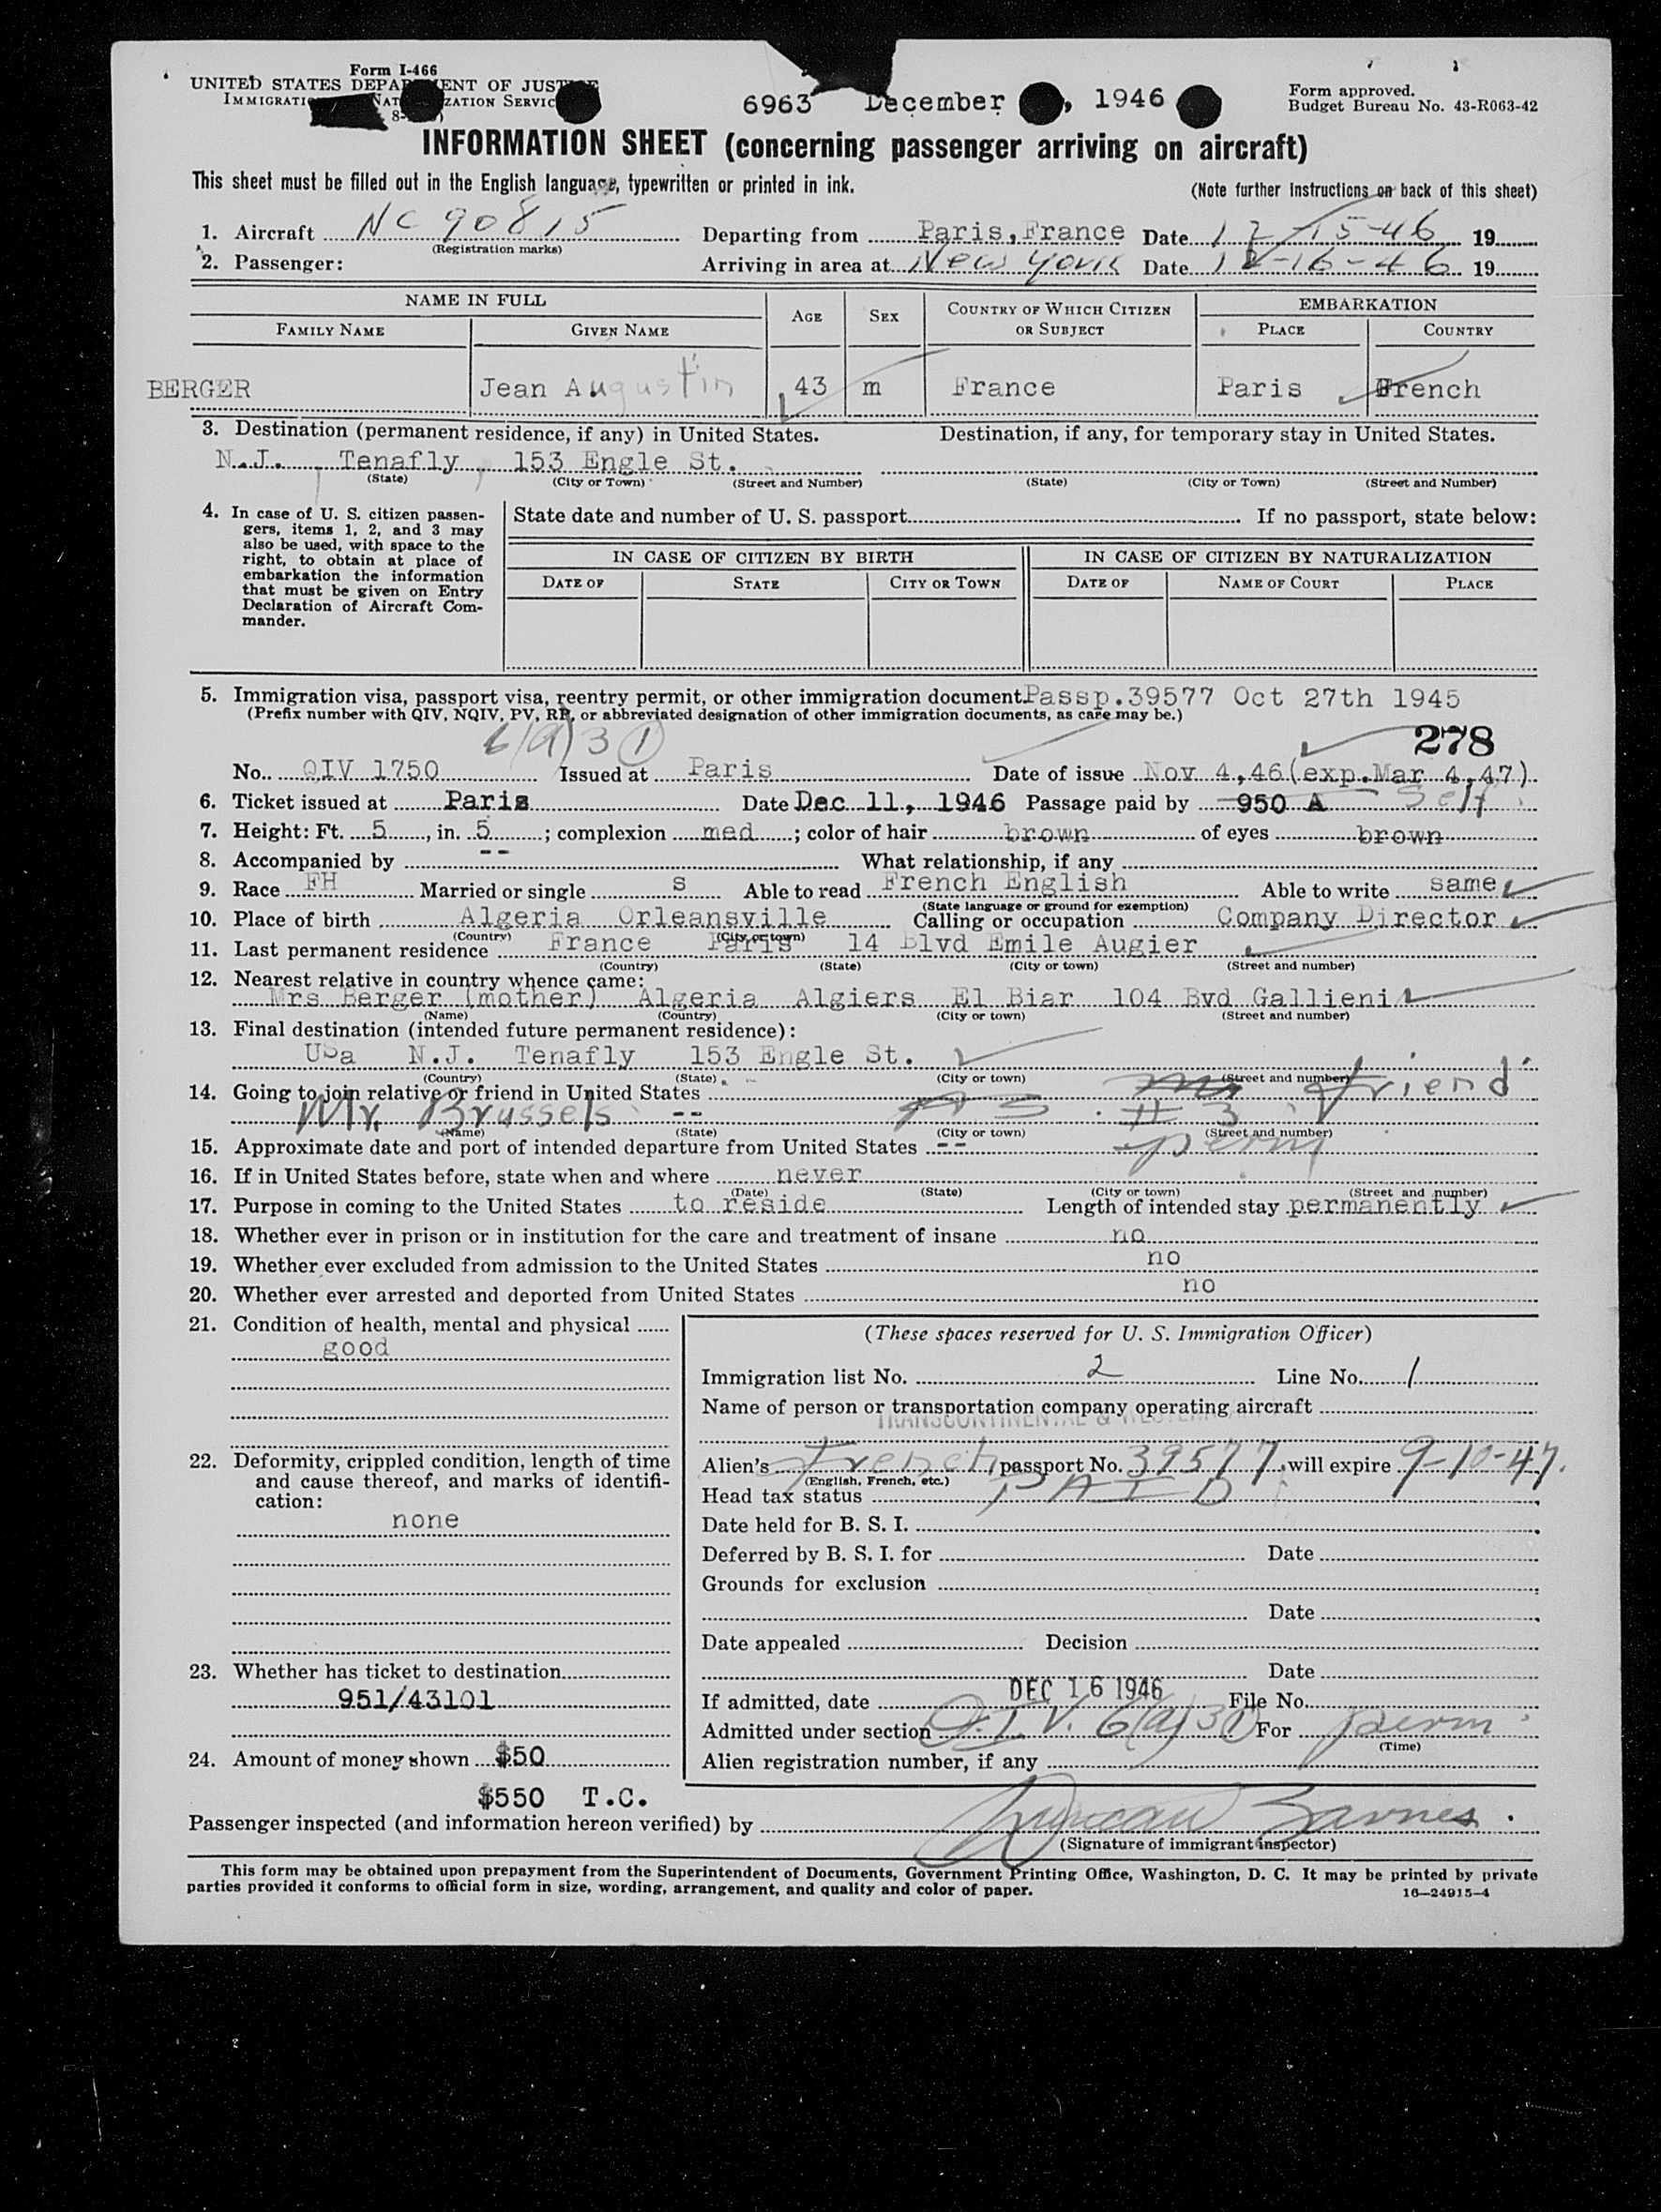 Form I-466
UNITED STATES DEPARTMENT OF JUSTICE
IMMIGRATION NATURALIZATION SERVICE
6963 December , 1946
Form approved.
Budget Bureau No. 43-R063-42
INFORMATION SHEET (concerning passenger arriving on aircraft)
This sheet must be filled out in the English language, typewritten or printed in ink.
(Note further instructions on back of this sheet)
1. Aircraft NC 90815 Departing from Paris, France Date 12-15-46 19
(Registration marks)
2. Passenger: Arriving in area at New York Date 12-16-46 19
NAME IN FULL AGE SEX COUNTRY OF WHICH CITIZEN OR SUBJECT EMBARKATION
FAMILY NAME GIVEN NAME PLACE COUNTRY
BERGER Jean Augustin 43 m France Paris French
3. Destination (permanent residence, if any) in United States. Destination, if any, for temporary stay in United States.
N.J. Tenafly 153 Engle St.
(State) (City or Town) (Street and Number) (State) (City or Town) (Street and Number)
4. In case of U. S. citizen passen-
gers, items 1, 2, and 3 may
also be used, with space to the
right, to obtain at place of
embarkation the information
that must be given on Entry
Declaration of Aircraft Com-
mander.
State date and number of U. S. passport If no passport, state below:
IN CASE OF CITIZEN BY BIRTH IN CASE OF CITIZEN BY NATURALIZATION
DATE OF STATE CITY OR TOWN DATE OF NAME OF COURT PLACE
5. Immigration visa, passport visa, reentry permit, or other immigration document. Passp.39577 Oct 27th 1945
(Prefix number with QIV, NQIV, PV, RP, or abbreviated designation of other immigration documents, as case may be.)
6(a)3(1) 278
No. QIV 1750 Issued at Paris Date of issue Nov 4,46(exp.Mar 4,47)
6. Ticket issued at Paris Date Dec 11, 1946 Passage paid by 950 A Self
7. Height: Ft. 5, in. 5; complexion med; color of hair brown of eyes brown
8. Accompanied by -- What relationship, if any
9. Race FH Married or single s Able to read French English Able to write same
(State language or ground for exemption)
10. Place of birth Algeria Orleansville Calling or occupation Company Director
(Country) (City or town)
11. Last permanent residence France Paris 14 Blvd Emile Augier
(Country) (State) (City or town) (Street and number)
12. Nearest relative in country whence came:
Mrs Berger (mother) Algeria Algiers El Biar 104 Bvd Gallieni
(Name) (Country) (City or town) (Street and number)
13. Final destination (intended future permanent residence):
Usa N.J. Tenafly 153 Engle St.
(Country) (State) (City or town) (Street and number)
14. Going to join relative or friend in United States friend
Mr. Brussels -- AS #3
(Name) (State) (City or town) (Street and number)
15. Approximate date and port of intended departure from United States -- perm
16. If in United States before, state when and where never
(Date) (State) (City or town) (Street and number)
17. Purpose in coming to the United States to reside Length of intended stay permanently
18. Whether ever in prison or in institution for the care and treatment of insane no
19. Whether ever excluded from admission to the United States no
20. Whether ever arrested and deported from United States no
21. Condition of health, mental and physical
good
22. Deformity, crippled condition, length of time
and cause thereof, and marks of identifi-
cation:
none
23. Whether has ticket to destination
951/43101
24. Amount of money shown $50
$550 T.C.
(These spaces reserved for U. S. Immigration Officer)
Immigration list No. 2 Line No. 1
Name of person or transportation company operating aircraft
TRANSCONTINENTAL & WESTERN
Alien's French passport No. 39577 will expire 9-10-47.
(English, French, etc.)
Head tax status PAID
Date held for B. S. I.
Deferred by B. S. I. for Date
Grounds for exclusion
Date
Date appealed Decision
Date
If admitted, date DEC 16 1946 File No.
Admitted under section Q.I.V. 6(a)3(1) For perm
(Time)
Alien registration number, if any
Passenger inspected (and information hereon verified) by Barnes
(Signature of immigrant inspector)
This form may be obtained upon prepayment from the Superintendent of Documents, Government Printing Office, Washington, D. C. It may be printed by private
parties provided it conforms to official form in size, wording, arrangement, and quality and color of paper.
16—24915-4